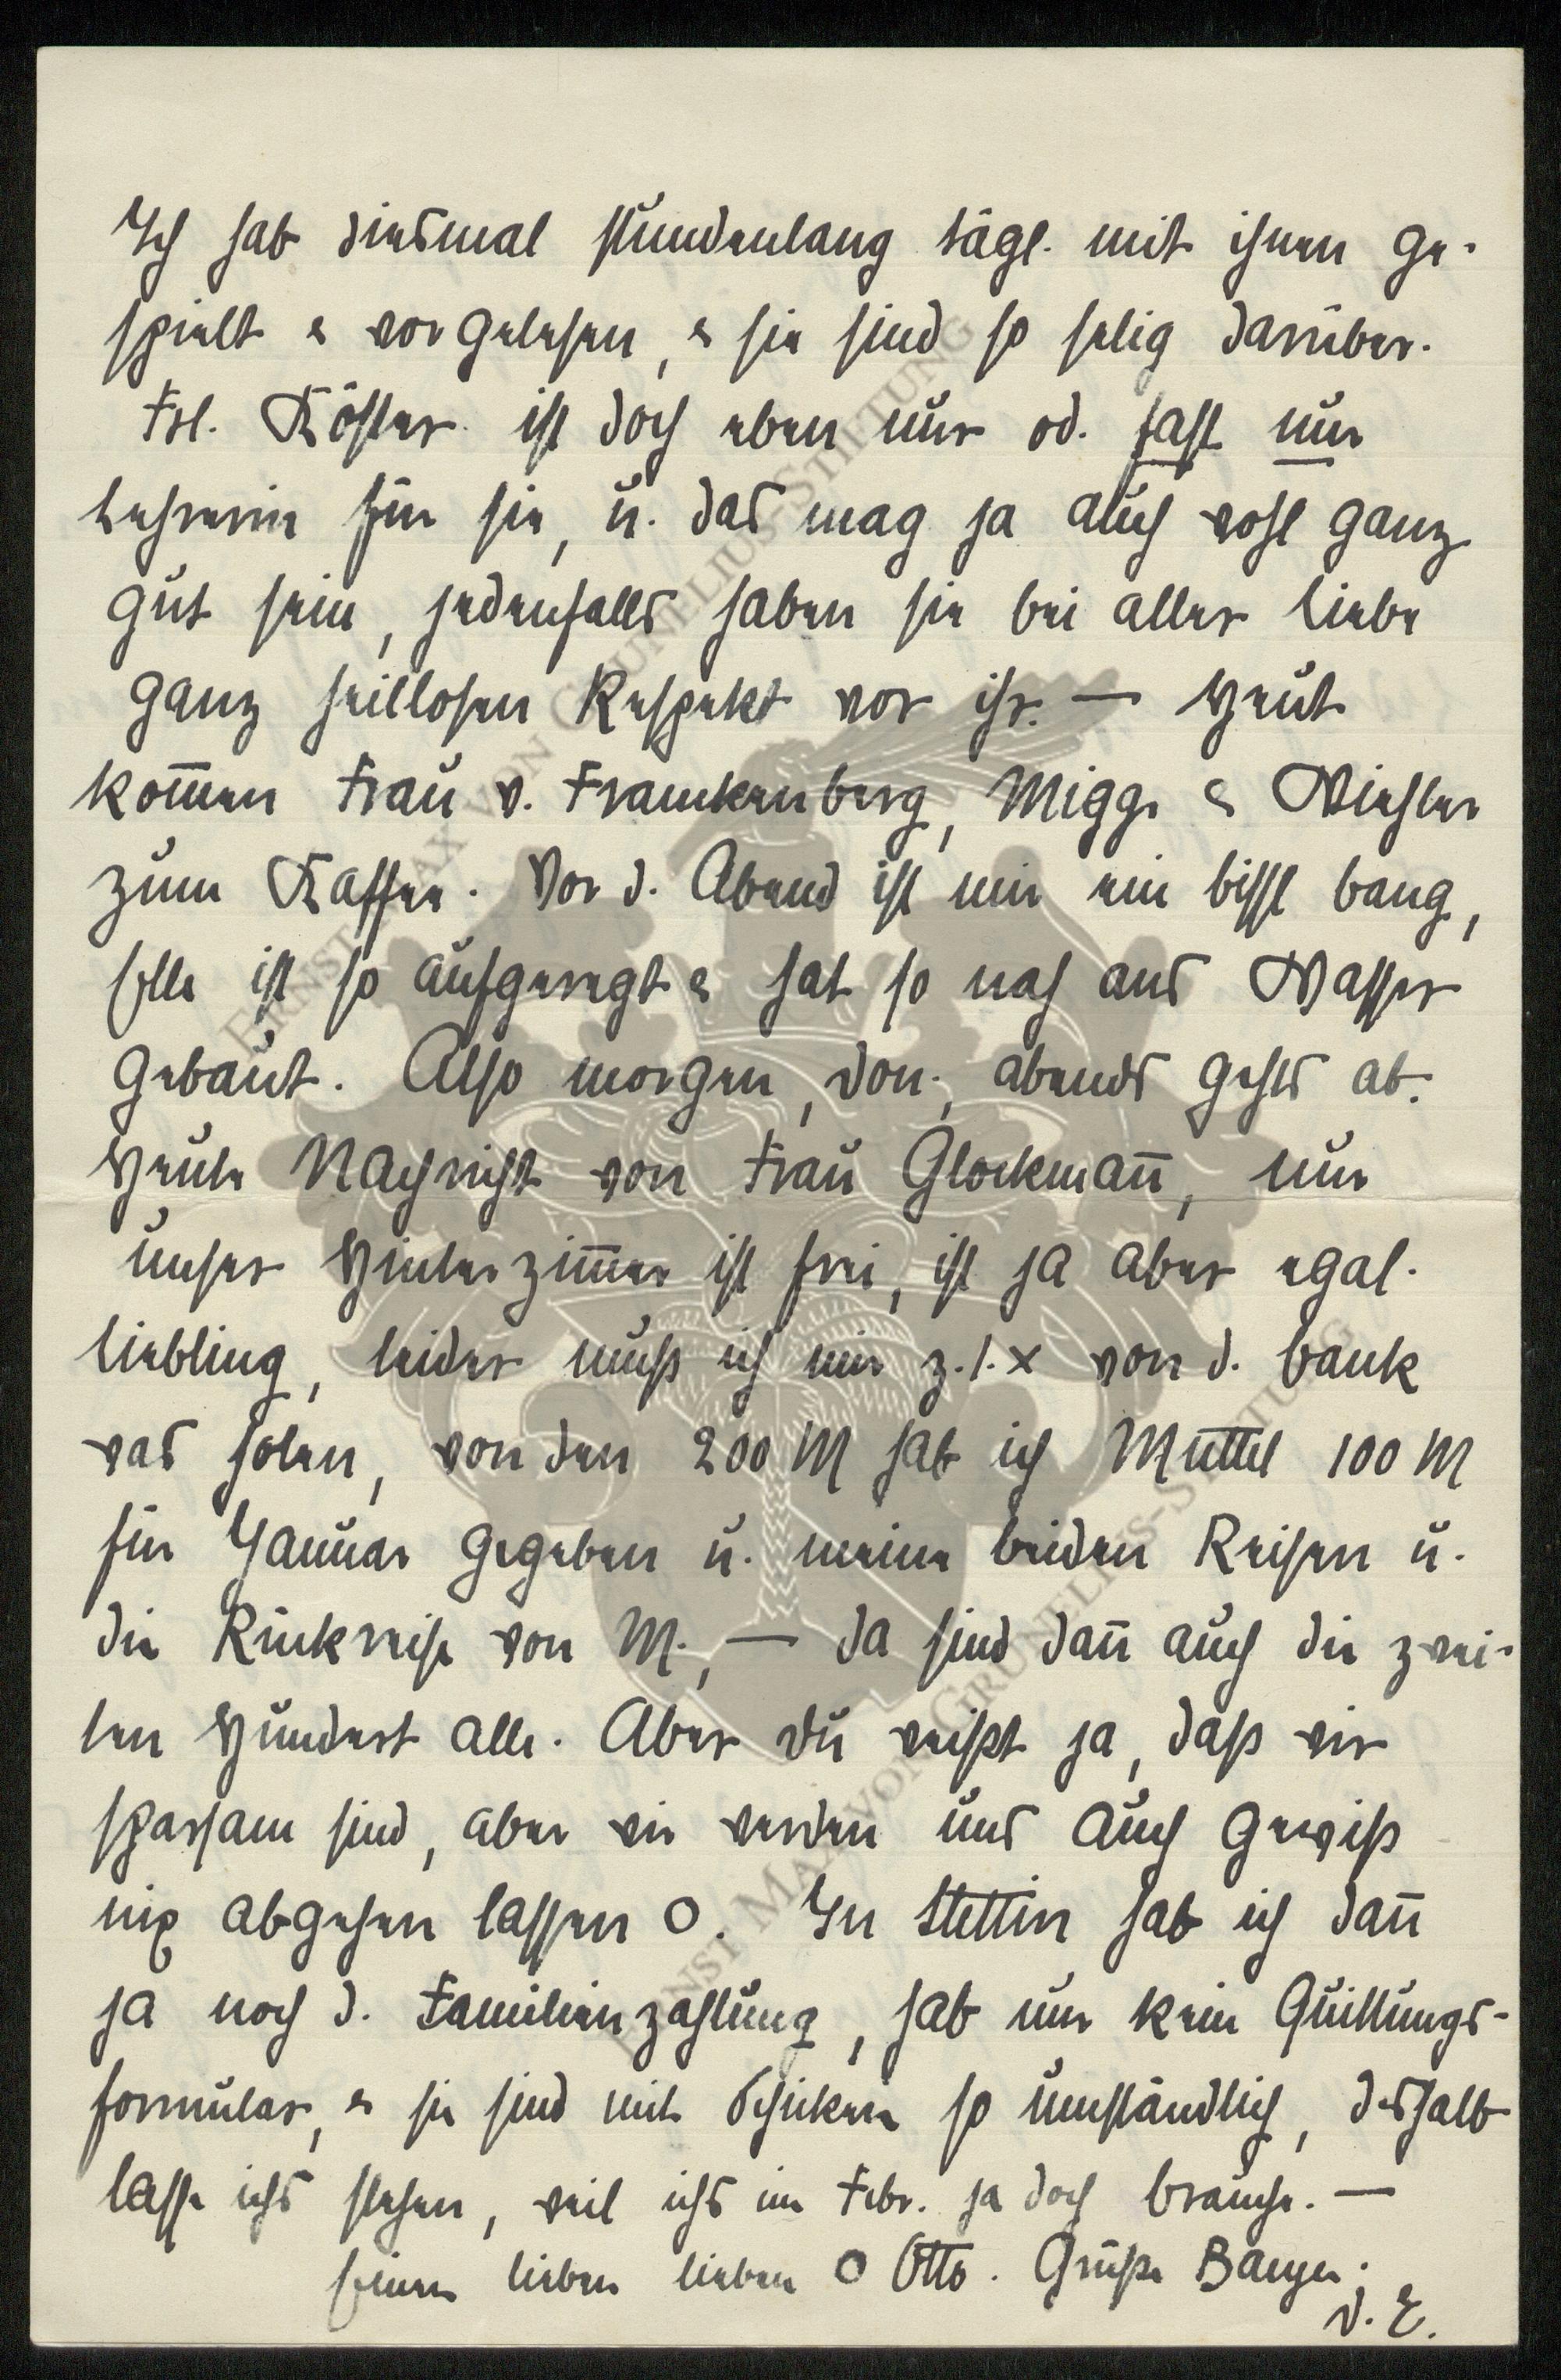 Ich hab diesmal stundenlang tägl. mit ihnen ge-
spielt & vorgelesen, & sie sind so selig darüber.
Frl. Köster ist doch eben nur od. fast nur
Lehrerin für sie, u. das mag ja auch wohl ganz
gut sein, jedenfalls haben sie bei aller Liebe
ganz heillosen Respekt vor ihr. — Heut
kom̄en Frau v. Franckenberg, Migge &
zum Kaffee. Vor d. Abend ist mir ein bissl bang,
Elle ist so aufgeregt & hat so nah ans Wasser
gebaut. Also morgen, Don., abends gehts ab.
Heute Nachricht von Frau Glockman̄, nur
unser Hinterzim̄er ist frei, ist ja aber egal.
Liebling, leider muß ich mir z. 1. x von d. Bank
was holen, von den 200 M hab ich Muttel 100 M
für Januar gegeben u. meine beiden Reisen u.
die Rückreise von M., — da sind dan̄ auch die zwei-
ten Hundert alle. Aber Du weißt ja, daß wir
sparsam sind, aber wir werden uns auch gewiß
nix abgehen lassen O. In Stettin hab ich dan̄
ja noch d. Familienzahlung, hab nur kein Quittungs-
formular, & sie sind mit Schicken so umständlich, deshalb
lasse ichs stehen, weil ichs im Febr. ja doch brauche. —
lieben lieben O Otto. Grüße
D. E.
ERNST MAX VON GRUNELIUS-STIFTUNG
ERNST MAX VON GRUNELIUS-STIFTUNG